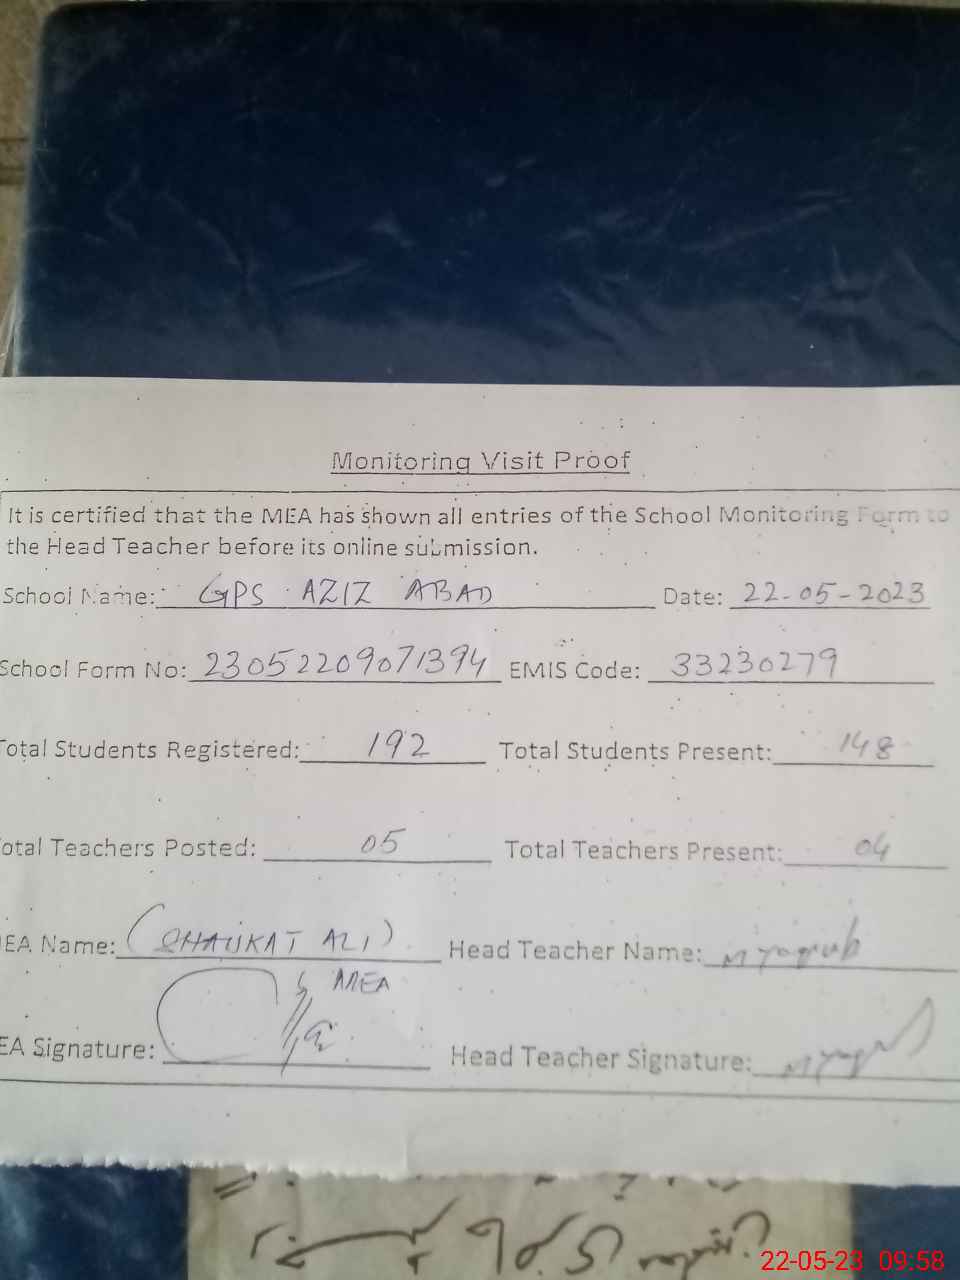 Monitoring Visit Proof
It is certified that the MEA has shown all entries of the School Monitoring Form to
the Head Teacher before its online submission.
School Name: GPS AZIZ ABAD Date: 22-05-2023
School Form No: 23052209071394 EMIS Code: 33230279
Total Students Registered: 192 Total Students Present: 148
otal Teachers Posted: 05 Total Teachers Present: 04
EA Name: (SHAUKAT ALI) Head Teacher Name: M Yaqub
MEA
EA Signature: Head Teacher Signature:
22-05-23 09:58